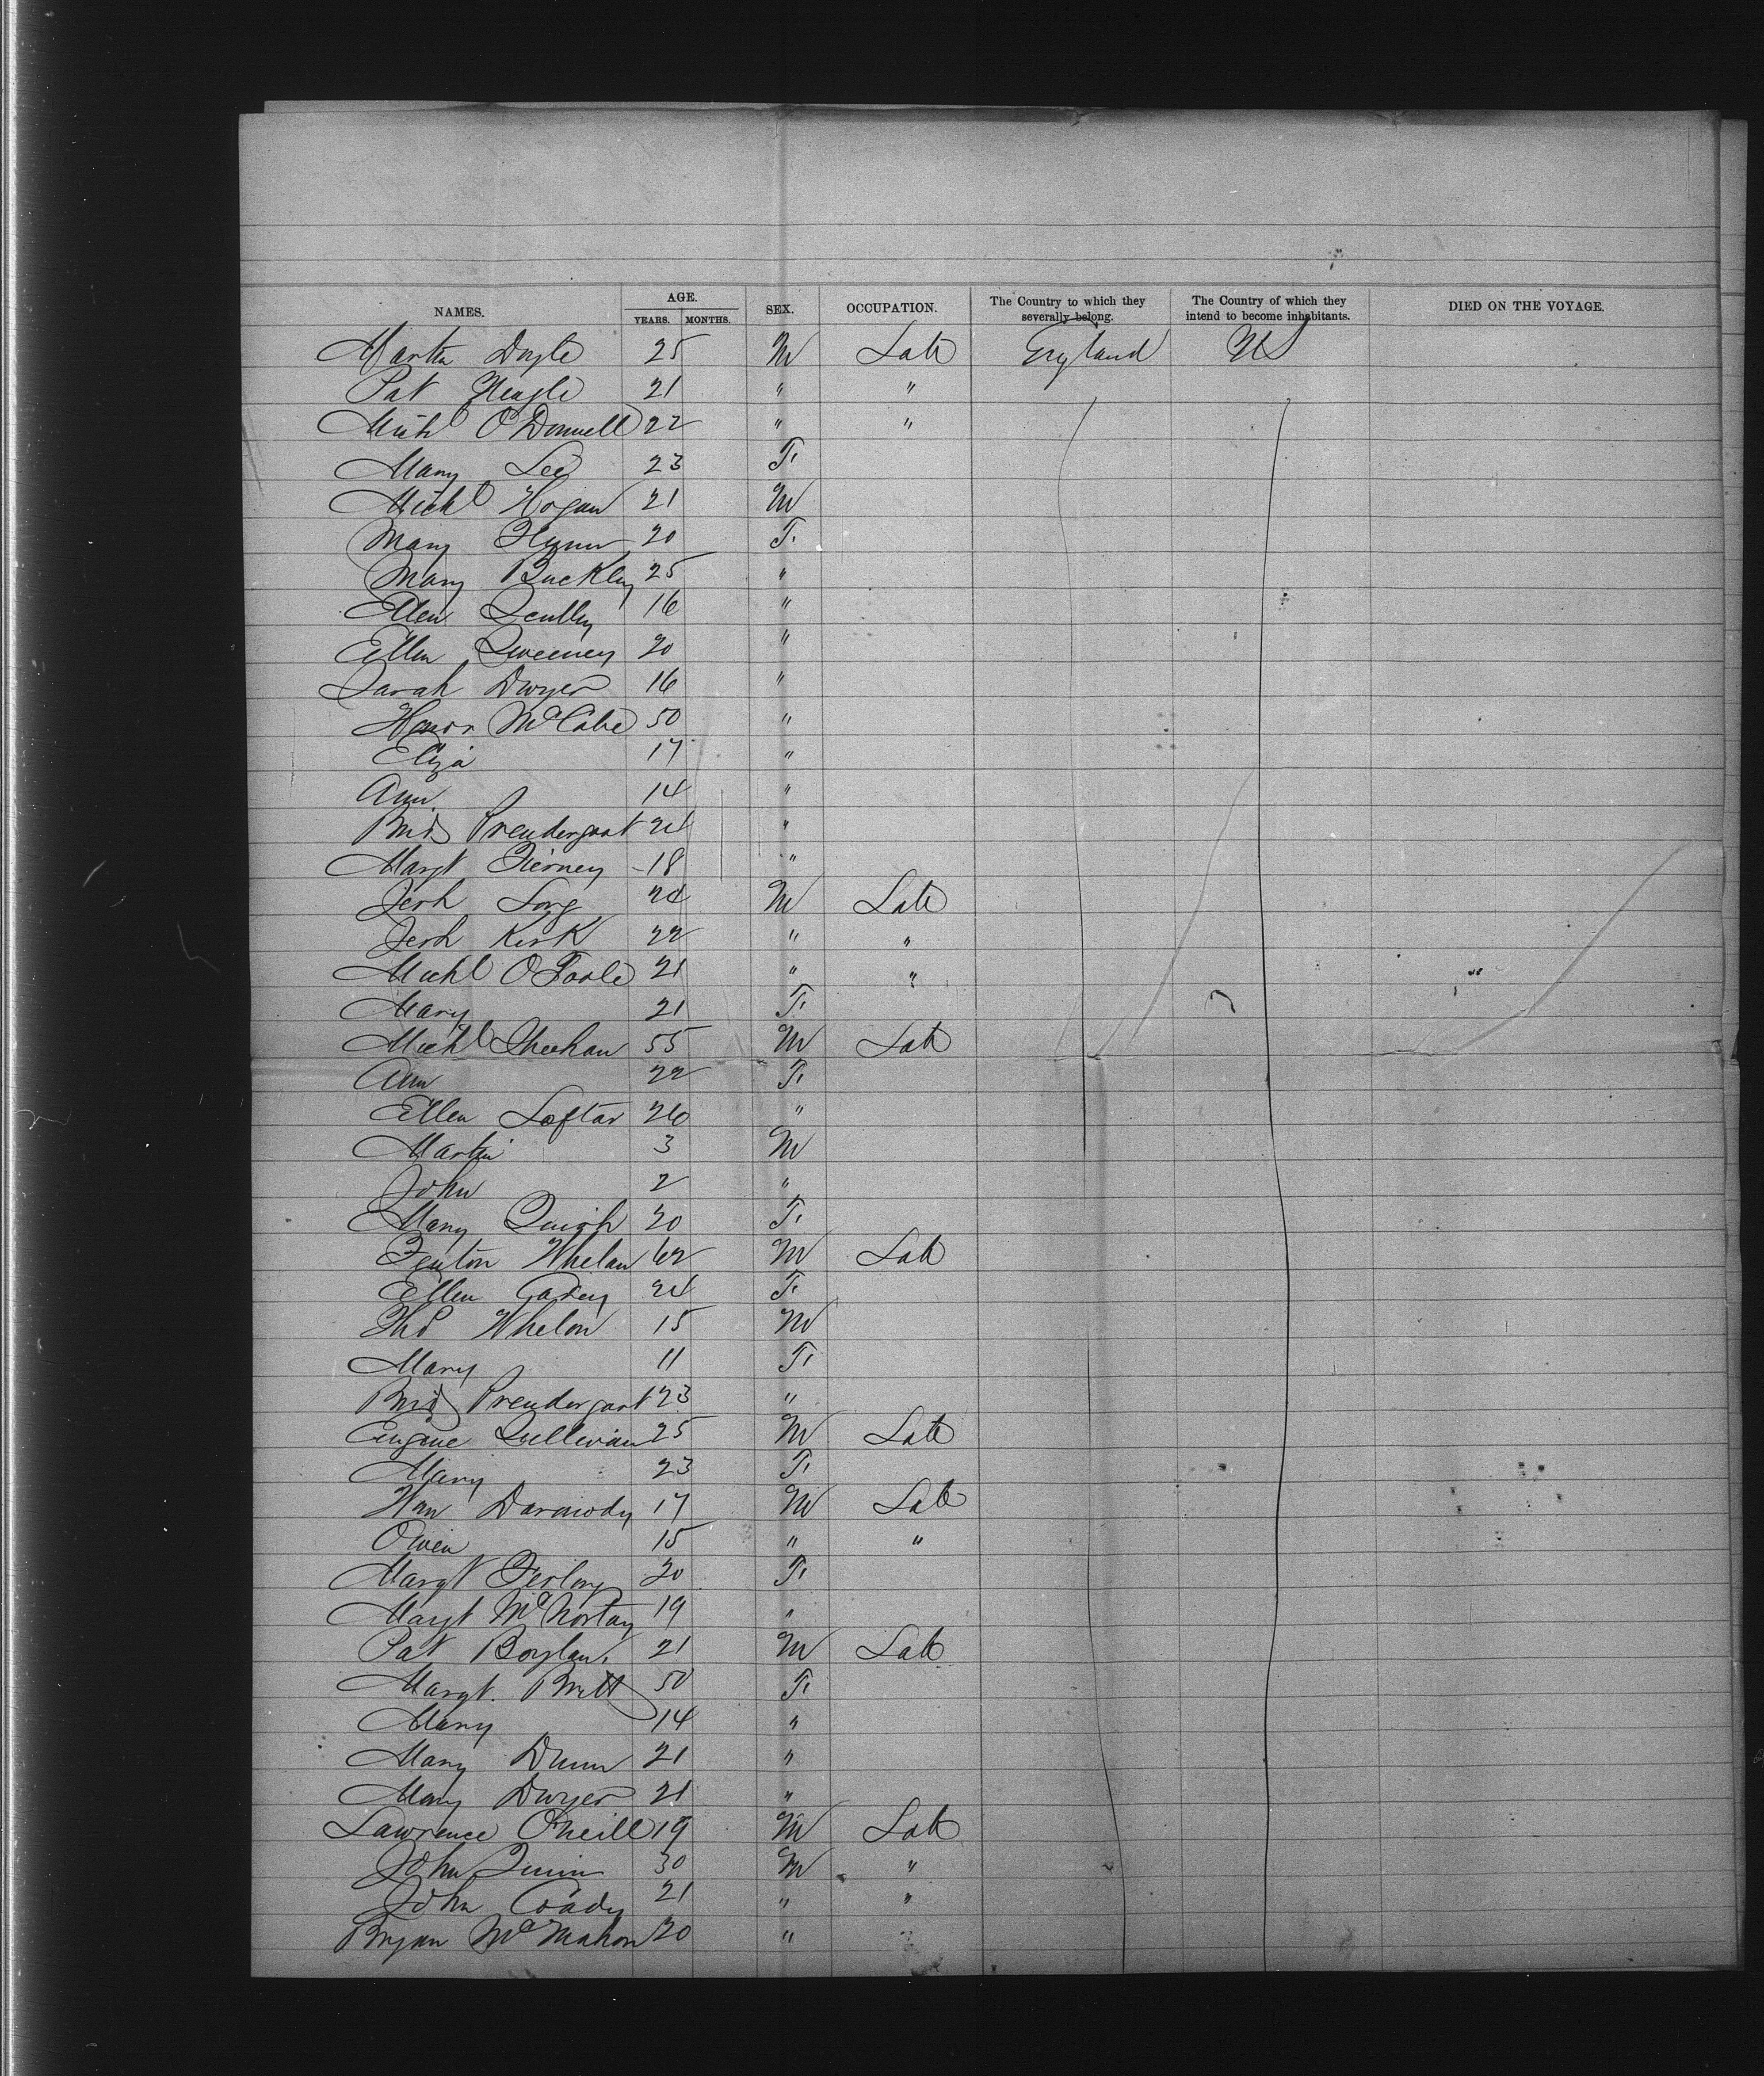 NAMES. AGE. SEX. OCCUPATION. The Country to which they severally belong. The Country of which they intend to become inhabitants. DIED ON THE VOYAGE.
YEARS. MONTHS.
Martin Doyle 25 M Lab England US
Pat Neagle 21 " "
Michl O'Donnell 22 " "
Mary Lee 23 F.
Michl Hogan 21 M
Mary Flynn 20 F.
Mary Buckley 25 "
Ellen Scully 16 "
Ellen Sweeney 20 "
Sarah Dwyer 16 "
Honor McCabe 50 "
Eliza 17 "
Ann 14 "
Brid Prendergast 24 "
Margt Tierney 18 "
Jerh Long 24 M Lab
Jerh Kirk 22 " "
Michl O'Toole 21 " "
Mary 21 F.
Michl Sheehan 55 M Lab
Ann 22 F.
Ellen Loftus 26 "
Martin 3 M
John 2 "
Mary Quirk 20 F.
Fenton Whelan 62 M Lab
Ellen 24 F.
Thos Whelan 15 M
Mary 11 F.
Brid Prendergast 23 "
Eugene Sullivan 25 M Lab
Mary 23 F.
Wm Darmody 17 M Lab
Owen 15 " "
Margt 20 F.
Margt 19 "
Pat Boylan. 21 M Lab
Margt. Britt 50 F.
Mary 14 "
Mary Dunn 21 "
Mary Dwyer 21 "
Lawrence O'Neill 19 M Lab
John Quinn 30 M "
John Coady 21 " "
Bryan McMahon 20 " "